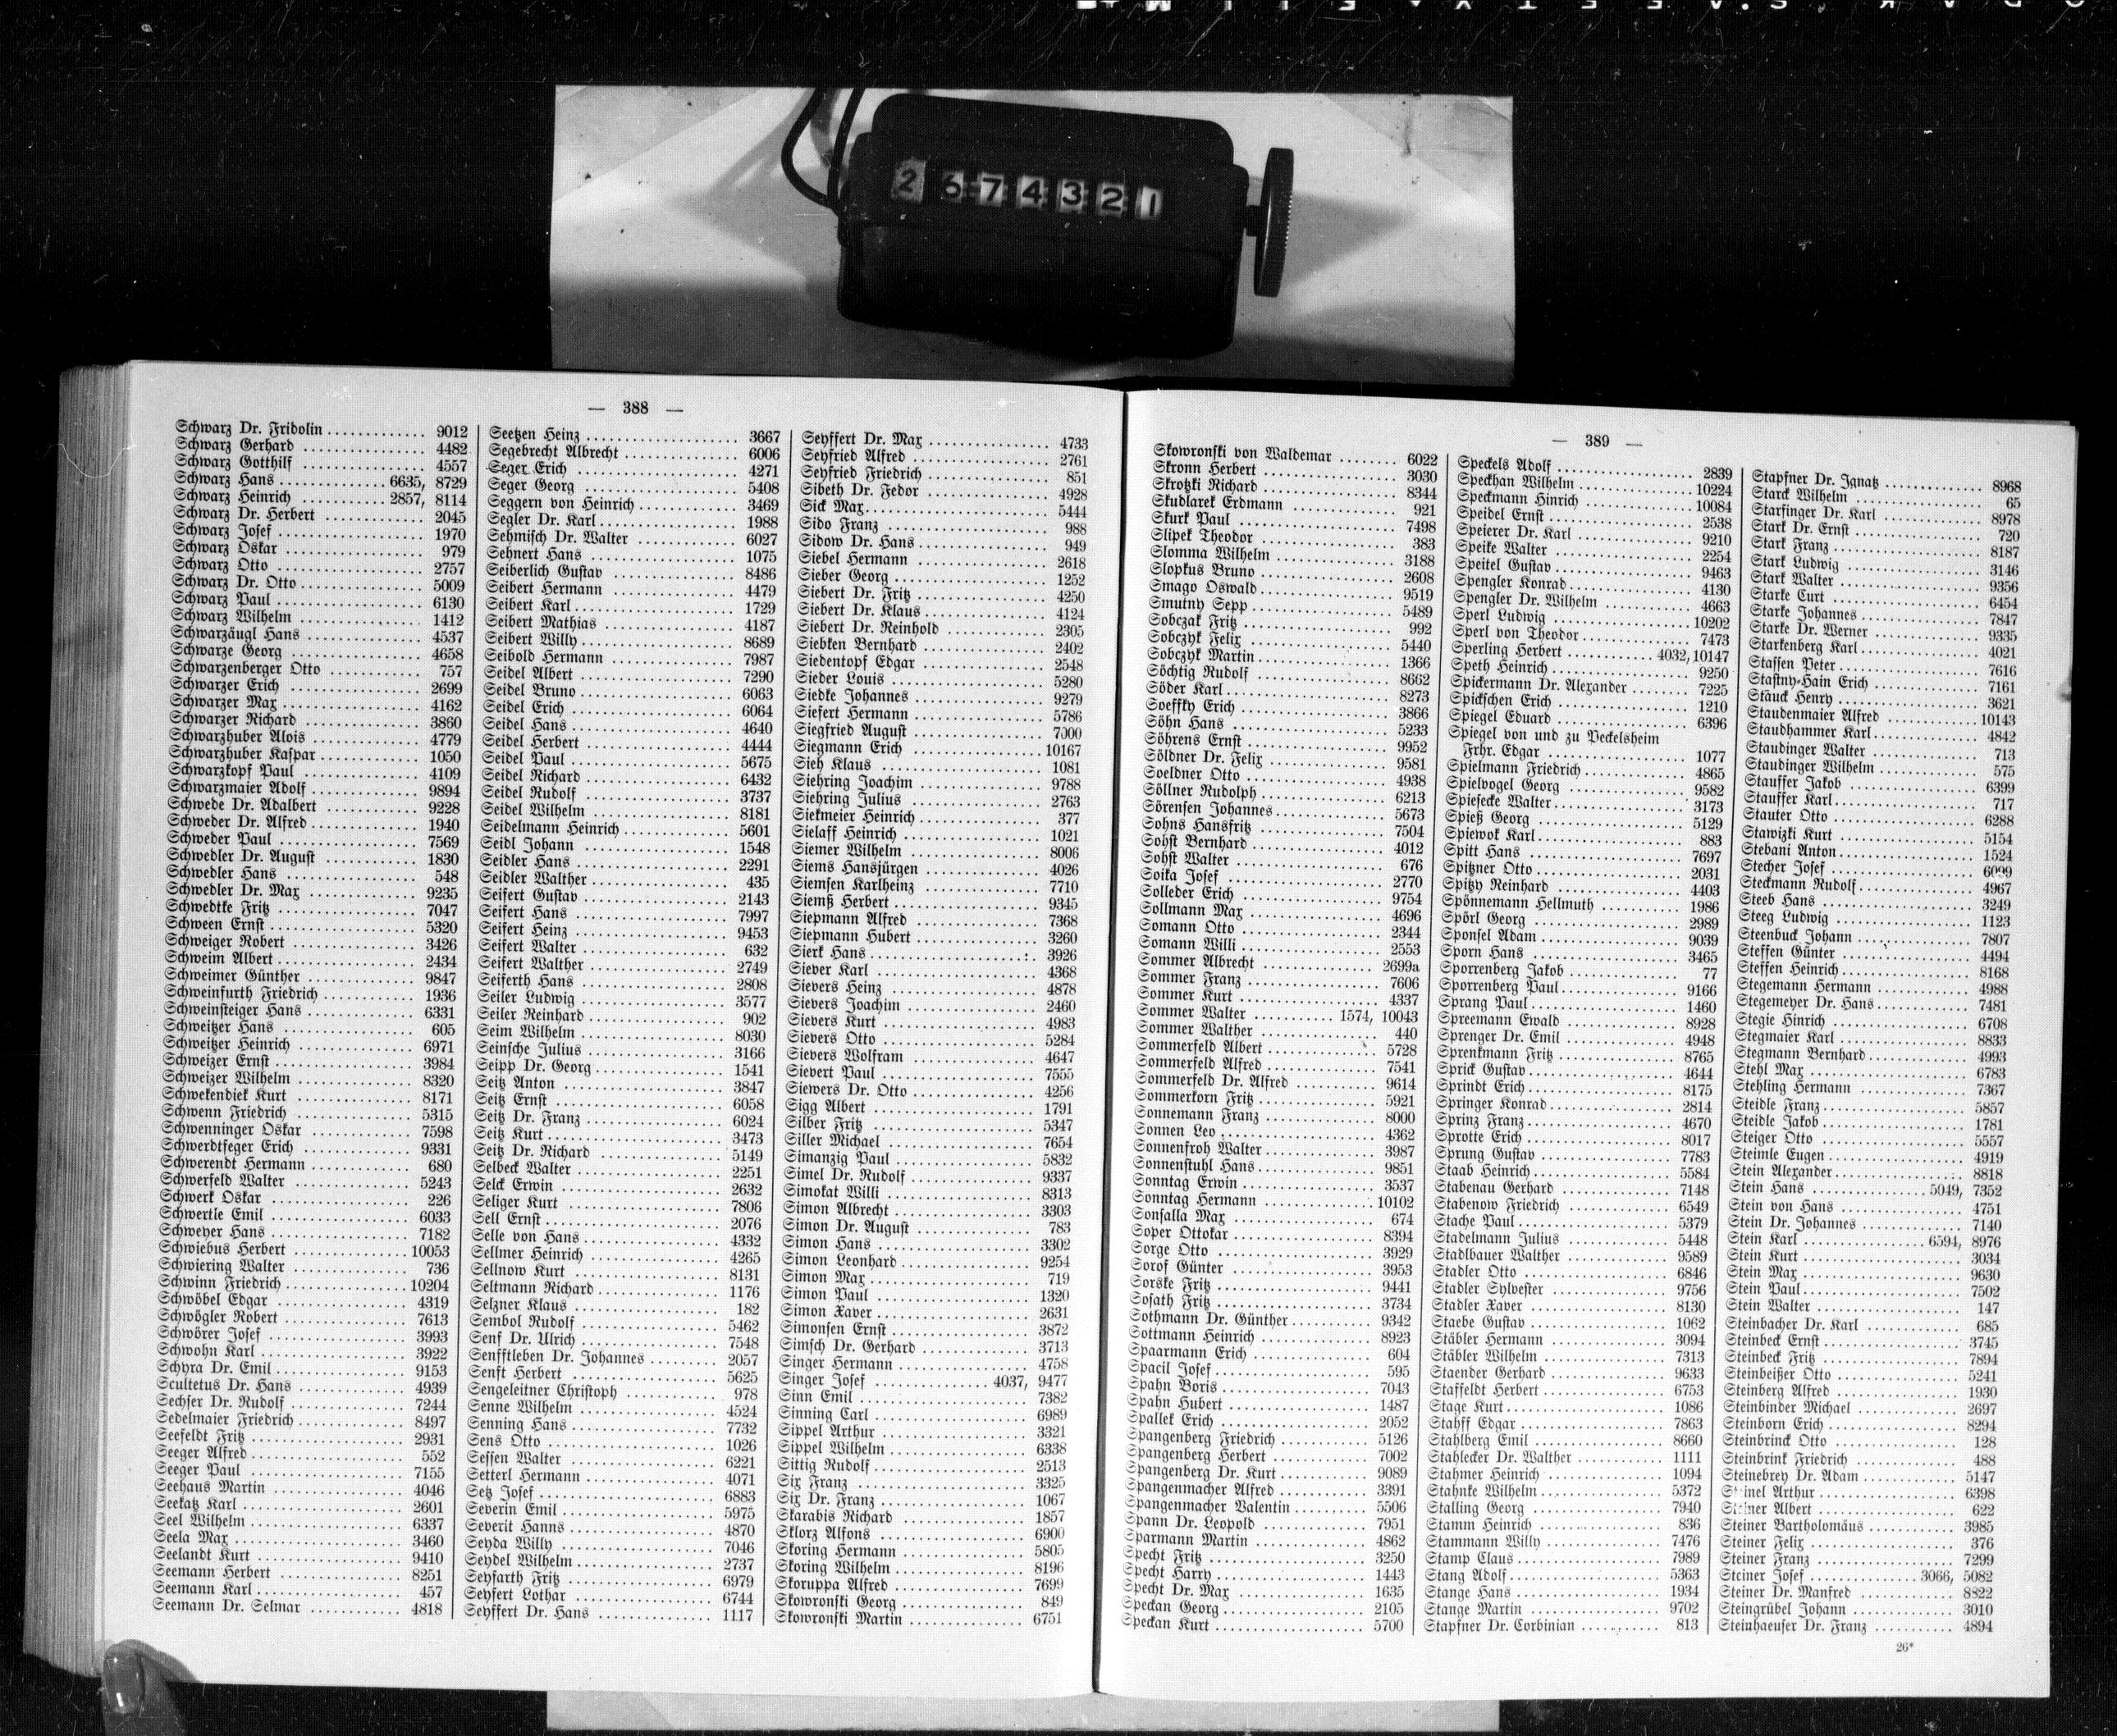 2674321
— 388 —
Schwarz Dr. Fridolin ............. 9012
Schwarz Gerhard ................. 4482
Schwarz Gotthilf ................ 4557
Schwarz Hans ............. 6635, 8729
Schwarz Heinrich .......... 2857, 8114
Schwarz Dr. Herbert ............. 2045
Schwarz Josef ................... 1970
Schwarz Oskar ................... 979
Schwarz Otto .................... 2757
Schwarz Dr. Otto ................ 5009
Schwarz Paul .................... 6130
Schwarz Wilhelm ................. 1412
Schwarzäugl Hans ................ 4537
Schwarze Georg .................. 4658
Schwarzenberger Otto ............ 757
Schwarzer Erich ................. 2699
Schwarzer Max ................... 4162
Schwarzer Richard ............... 3860
Schwarzhuber Alois .............. 4779
Schwarzhuber Kaspar ............. 1050
Schwarzkopf Paul ................ 4109
Schwarzmaier Adolf .............. 9894
Schwede Dr. Adalbert ............ 9228
Schweder Dr. Alfred ............. 1940
Schweder Paul ................... 7569
Schwedler Dr. August ............ 1830
Schwedler Hans .................. 548
Schwedler Dr. Max ............... 9235
Schwedtke Fritz ................. 7047
Schween Ernst ................... 5320
Schweiger Robert ................ 3426
Schweim Albert .................. 2434
Schweimer Günther ............... 9847
Schweinfurth Friedrich .......... 1936
Schweinsteiger Hans ............. 6331
Schweitzer Hans ................. 605
Schweitzer Heinrich ............. 6971
Schweizer Ernst ................. 3984
Schweizer Wilhelm ............... 8320
Schwekendiek Kurt ............... 8171
Schwenn Friedrich ............... 5315
Schwenninger Oskar .............. 7598
Schwerdtfeger Erich ............. 9331
Schwerendt Hermann .............. 680
Schwerfeld Walter ............... 5243
Schwerk Oskar ................... 226
Schwertle Emil .................. 6033
Schweyer Hans ................... 7182
Schwiebus Herbert ............... 10053
Schwiering Walter ............... 736
Schwinn Friedrich ............... 10204
Schwöbel Edgar .................. 4319
Schwögler Robert ................ 7613
Schwörer Josef .................. 3993
Schwohn Karl .................... 3922
Schyra Dr. Emil ................. 9153
Scultetus Dr. Hans .............. 4939
Sechser Dr. Rudolf .............. 7244
Sedelmaier Friedrich ............ 8497
Seefeldt Fritz .................. 2931
Seeger Alfred ................... 552
Seeger Paul ..................... 7155
Seehaus Martin .................. 4046
Seekatz Karl .................... 2601
Seel Wilhelm .................... 6337
Seela Max ....................... 3460
Seelandt Kurt ................... 9410
Seemann Herbert ................. 8251
Seemann Karl .................... 457
Seemann Dr. Selmar .............. 4818
Seetzen Heinz ................... 3667
Segebrecht Albrecht ............. 6006
Seger Erich ..................... 4271
Seger Georg ..................... 5408
Seggern von Heinrich ............ 3469
Segler Dr. Karl ................. 1988
Sehmisch Dr. Walter ............. 6027
Sehnert Hans .................... 1075
Seiberlich Gustav ............... 8486
Seibert Hermann ................. 4479
Seibert Karl .................... 1729
Seibert Mathias ................. 4187
Seibert Willy ................... 8689
Seibold Hermann ................. 7987
Seidel Albert ................... 7290
Seidel Bruno .................... 6063
Seidel Erich .................... 6064
Seidel Hans ..................... 4640
Seidel Herbert .................. 4444
Seidel Paul ..................... 5675
Seidel Richard .................. 6432
Seidel Rudolf ................... 3737
Seidel Wilhelm .................. 8181
Seidelmann Heinrich ............. 5601
Seidl Johann .................... 1548
Seidler Hans .................... 2291
Seidler Walther ................. 435
Seifert Gustav .................. 2143
Seifert Hans .................... 7997
Seifert Heinz ................... 9453
Seifert Walter .................. 632
Seifert Walther ................. 2749
Seiferth Hans ................... 2808
Seiler Ludwig ................... 3577
Seiler Reinhard ................. 902
Seim Wilhelm .................... 8030
Seinsche Julius ................. 3166
Seipp Dr. Georg ................. 1541
Seitz Anton ..................... 3847
Seitz Ernst ..................... 6058
Seitz Dr. Franz ................. 6024
Seitz Kurt ...................... 3473
Seitz Dr. Richard ............... 5149
Selbeck Walter .................. 2251
Selck Erwin ..................... 2632
Seliger Kurt .................... 7806
Sell Ernst ...................... 2076
Selle von Hans .................. 4332
Sellmer Heinrich ................ 4265
Sellnow Kurt .................... 8131
Seltmann Richard ................ 1176
Selzner Klaus ................... 182
Sembol Rudolf ................... 5462
Senf Dr. Ulrich ................. 7548
Senfftleben Dr. Johannes ........ 2057
Senft Herbert ................... 5625
Sengeleitner Christoph .......... 978
Senne Wilhelm ................... 4524
Senning Hans .................... 7732
Sens Otto ....................... 1026
Sessen Walter ................... 6221
Setterl Hermann ................. 4071
Setz Josef ...................... 6883
Severin Emil .................... 5975
Severit Hanns ................... 4870
Seyda Willy ..................... 7046
Seydel Wilhelm .................. 2737
Seyfarth Fritz .................. 6979
Seyfert Lothar .................. 6744
Seyffert Dr. Hans ............... 1117
Seyffert Dr. Max ................ 4733
Seyfried Alfred ................. 2761
Seyfried Friedrich .............. 851
Sibeth Dr. Fedor ................ 4928
Sick Max ........................ 5444
Sido Franz ...................... 988
Sidow Dr. Hans .................. 949
Siebel Hermann .................. 2618
Sieber Georg .................... 1252
Siebert Dr. Fritz ............... 4250
Siebert Dr. Klaus ............... 4124
Siebert Dr. Reinhold ............ 2305
Siebken Bernhard ................ 2402
Siedentopf Edgar ................ 2548
Sieder Louis .................... 5280
Siedke Johannes ................. 9279
Siefert Hermann ................. 5786
Siegfried August ................ 7000
Siegmann Erich .................. 10167
Sieh Klaus ...................... 1081
Siehring Joachim ................ 9788
Siehring Julius ................. 2763
Siekmeier Heinrich .............. 377
Sielaff Heinrich ................ 1021
Siemer Wilhelm .................. 8006
Siems Hansjürgen ................ 4026
Siemsen Karlheinz ............... 7710
Siemß Herbert ................... 9345
Siepmann Alfred ................. 7368
Siepmann Hubert ................. 3260
Sierk Hans ...................... 3926
Siever Karl ..................... 4368
Sievers Heinz ................... 4878
Sievers Joachim ................. 2460
Sievers Kurt .................... 4983
Sievers Otto .................... 5284
Sievers Wolfram ................. 4647
Sievert Paul .................... 7555
Siewers Dr. Otto ................ 4256
Sigg Albert ..................... 1791
Silber Fritz .................... 5347
Siller Michael .................. 7654
Simanzig Paul ................... 5832
Simel Dr. Rudolf ................ 9337
Simokat Willi ................... 8313
Simon Albrecht .................. 3303
Simon Dr. August ................ 783
Simon Hans ...................... 3302
Simon Leonhard .................. 9254
Simon Max ....................... 719
Simon Paul ...................... 1320
Simon Xaver ..................... 2631
Simonsen Ernst .................. 3872
Simsch Dr. Gerhard .............. 3713
Singer Hermann .................. 4758
Singer Josef .............. 4037, 9477
Sinn Emil ....................... 7382
Sinning Carl .................... 6989
Sippel Arthur ................... 3321
Sippel Wilhelm .................. 6338
Sittig Rudolf ................... 2513
Six Franz ....................... 3325
Six Dr. Franz ................... 1067
Skarabis Richard ................ 1857
Sklorz Alfons ................... 6900
Skoring Hermann ................. 5805
Skoring Wilhelm ................. 8196
Skoruppa Alfred ................. 7699
Skowronski Georg ................ 849
Skowronski Martin ............... 6751
— 389 —
Skowronski von Waldemar ........ 6022
Skronn Herbert .................. 3030
Skrotzki Richard ................ 8344
Skudlarek Erdmann ............... 921
Skurk Paul ...................... 7498
Slipek Theodor .................. 383
Slomma Wilhelm .................. 3188
Slopkus Bruno ................... 2608
Smago Oswald .................... 9519
Smutny Sepp ..................... 5489
Sobczak Fritz ................... 992
Sobczyk Felix ................... 5440
Sobczyk Martin .................. 1366
Söchtig Rudolf .................. 8662
Söder Karl ...................... 8273
Soeffky Erich ................... 3866
Söhn Hans ....................... 5233
Söhrens Ernst ................... 9952
Söldner Dr. Felix ............... 9581
Soeldner Otto ................... 4938
Söllner Rudolph ................. 6213
Sörensen Johannes ............... 5673
Sohns Hansfritz ................. 7504
Sohst Bernhard .................. 4012
Sohst Walter .................... 676
Soika Josef ..................... 2770
Solleder Erich .................. 9754
Sollmann Max .................... 4696
Somann Otto ..................... 2344
Somann Willi .................... 2553
Sommer Albrecht ................. 2699a
Sommer Franz .................... 7606
Sommer Kurt ..................... 4337
Sommer Walter ............ 1574, 10043
Sommer Walther .................. 440
Sommerfeld Albert ............... 5728
Sommerfeld Alfred ............... 7541
Sommerfeld Dr. Alfred ........... 9614
Sommerkorn Fritz ................ 5921
Sonnemann Franz ................. 8000
Sonnen Leo ...................... 4362
Sonnenfroh Walter ............... 3987
Sonnenstuhl Hans ................ 9851
Sonntag Erwin ................... 3537
Sonntag Hermann ................. 10102
Sonsalla Max .................... 674
Soper Ottokar ................... 8394
Sorge Otto ...................... 3929
Sorof Günter .................... 3953
Sorske Fritz .................... 9441
Sosath Fritz .................... 3734
Sothmann Dr. Günther ............ 9342
Sottmann Heinrich ............... 8923
Spaarmann Erich ................. 604
Spacil Josef .................... 595
Spahn Boris ..................... 7043
Spahn Hubert .................... 1487
Spallek Erich ................... 2052
Spangenberg Friedrich ........... 5126
Spangenberg Herbert ............. 7002
Spangenberg Dr. Kurt ............ 9089
Spangenmacher Alfred ............ 3391
Spangenmacher Valentin .......... 5506
Spann Dr. Leopold ............... 7951
Sparmann Martin ................. 4862
Specht Fritz .................... 3250
Specht Harry .................... 1443
Specht Dr. Max .................. 1635
Speckan Georg ................... 2105
Speckan Kurt .................... 5700
Speckels Adolf .................. 2839
Speckhan Wilhelm ................ 10224
Speckmann Hinrich ............... 10084
Speidel Ernst ................... 2538
Speierer Dr. Karl ............... 9210
Speike Walter ................... 2254
Speitel Gustav .................. 9463
Spengler Konrad ................. 4130
Spengler Dr. Wilhelm ............ 4663
Sperl Ludwig .................... 10202
Sperl von Theodor ............... 7473
Sperling Herbert .......... 4032, 10147
Speth Heinrich .................. 9250
Spickermann Dr. Alexander ....... 7225
Spickschen Erich ................ 1210
Spiegel Eduard .................. 6396
Spiegel von und zu Peckelsheim
Frhr. Edgar ..................... 1077
Spielmann Friedrich ............. 4865
Spielvogel Georg ................ 9582
Spiesecke Walter ................ 3173
Spieß Georg ..................... 5129
Spiewok Karl .................... 883
Spitt Hans ...................... 7697
Spitzner Otto ................... 2031
Spitzy Reinhard ................. 4403
Spönnemann Hellmuth ............. 1986
Spörl Georg ..................... 2989
Sponsel Adam .................... 9039
Sporn Hans ...................... 3465
Sporrenberg Jakob ............... 77
Sporrenberg Paul ................ 9166
Sprang Paul ..................... 1460
Spreemann Ewald ................. 8928
Sprenger Dr. Emil ............... 4948
Sprenkmann Fritz ................ 8765
Sprick Gustav ................... 4644
Sprindt Erich ................... 8175
Springer Konrad ................. 2814
Sprinz Franz .................... 4670
Sprotte Erich ................... 8017
Sprung Gustav ................... 7783
Staab Heinrich .................. 5584
Stabenau Gerhard ................ 7148
Stabenow Friedrich .............. 6549
Stache Paul ..................... 5379
Stadelmann Julius ............... 5448
Stadlbauer Walther .............. 9589
Stadler Otto .................... 6846
Stadler Sylvester ............... 9756
Stadler Xaver ................... 8130
Staebe Gustav ................... 1062
Stäbler Hermann ................. 3094
Stäbler Wilhelm ................. 7313
Staender Gerhard ................ 9633
Staffeldt Herbert ............... 6753
Stage Kurt ...................... 1086
Stahff Edgar .................... 7863
Stahlberg Emil .................. 8660
Stahlecker Dr. Walther .......... 1111
Stahmer Heinrich ................ 1094
Stahnke Wilhelm ................. 5372
Stalling Georg .................. 7940
Stamm Heinrich .................. 836
Stammann Willy .................. 7476
Stamp Claus ..................... 7989
Stang Adolf ..................... 5363
Stange Hans ..................... 1934
Stange Martin ................... 9702
Stapfner Dr. Corbinian .......... 813
Stapfner Dr. Ignatz ............. 8968
Starck Wilhelm .................. 65
Starfinger Dr. Karl ............. 8978
Stark Dr. Ernst ................. 720
Stark Franz ..................... 8187
Stark Ludwig .................... 3146
Stark Walter .................... 9356
Starke Curt ..................... 6454
Starke Johannes ................. 7847
Starke Dr. Werner ............... 9335
Starkenberg Karl ................ 4021
Stassen Peter ................... 7616
Stastny-Hain Erich .............. 7161
Stäuck Henry .................... 3621
Staudenmaier Alfred ............. 10143
Staudhammer Karl ................ 4842
Staudinger Walter ............... 713
Staudinger Wilhelm .............. 575
Stauffer Jakob .................. 6399
Stauffer Karl ................... 717
Stauter Otto .................... 6288
Stawizki Kurt ................... 5154
Stebani Anton ................... 1524
Stecher Josef ................... 6099
Steckmann Rudolf ................ 4967
Steeb Hans ...................... 3249
Steeg Ludwig .................... 1123
Steenbuck Johann ................ 7807
Steffen Günter .................. 4494
Steffen Heinrich ................ 8168
Stegemann Hermann ............... 4988
Stegemeyer Dr. Hans ............. 7481
Stegie Hinrich .................. 6708
Stegmaier Karl .................. 8833
Stegmann Bernhard ............... 4993
Stehl Max ....................... 6783
Stehling Hermann ................ 7367
Steidle Franz ................... 5857
Steidle Jakob ................... 1781
Steiger Otto .................... 5557
Steimle Eugen ................... 4919
Stein Alexander ................. 8818
Stein Hans ................ 5049, 7352
Stein von Hans .................. 4751
Stein Dr. Johannes .............. 7140
Stein Karl ................ 6594, 8976
Stein Kurt ...................... 3034
Stein Max ....................... 9630
Stein Paul ...................... 7502
Stein Walter .................... 147
Steinbacher Dr. Karl ............ 685
Steinbeck Ernst ................. 3745
Steinbeck Fritz ................. 7894
Steinbeißer Otto ................ 5241
Steinberg Alfred ................ 1930
Steinbinder Michael ............. 2697
Steinborn Erich ................. 8294
Steinbrinck Otto ................ 128
Steinbrink Friedrich ............ 488
Steinebrey Dr. Adam ............. 5147
Steinel Arthur .................. 6398
Steiner Albert .................. 622
Steiner Bartholomäus ............ 3985
Steiner Felix ................... 376
Steiner Franz ................... 7299
Steiner Josef ............. 3066, 5082
Steiner Dr. Manfred ............. 8822
Steingrübel Johann .............. 3010
Steinhaeuser Dr. Franz .......... 4894
26*